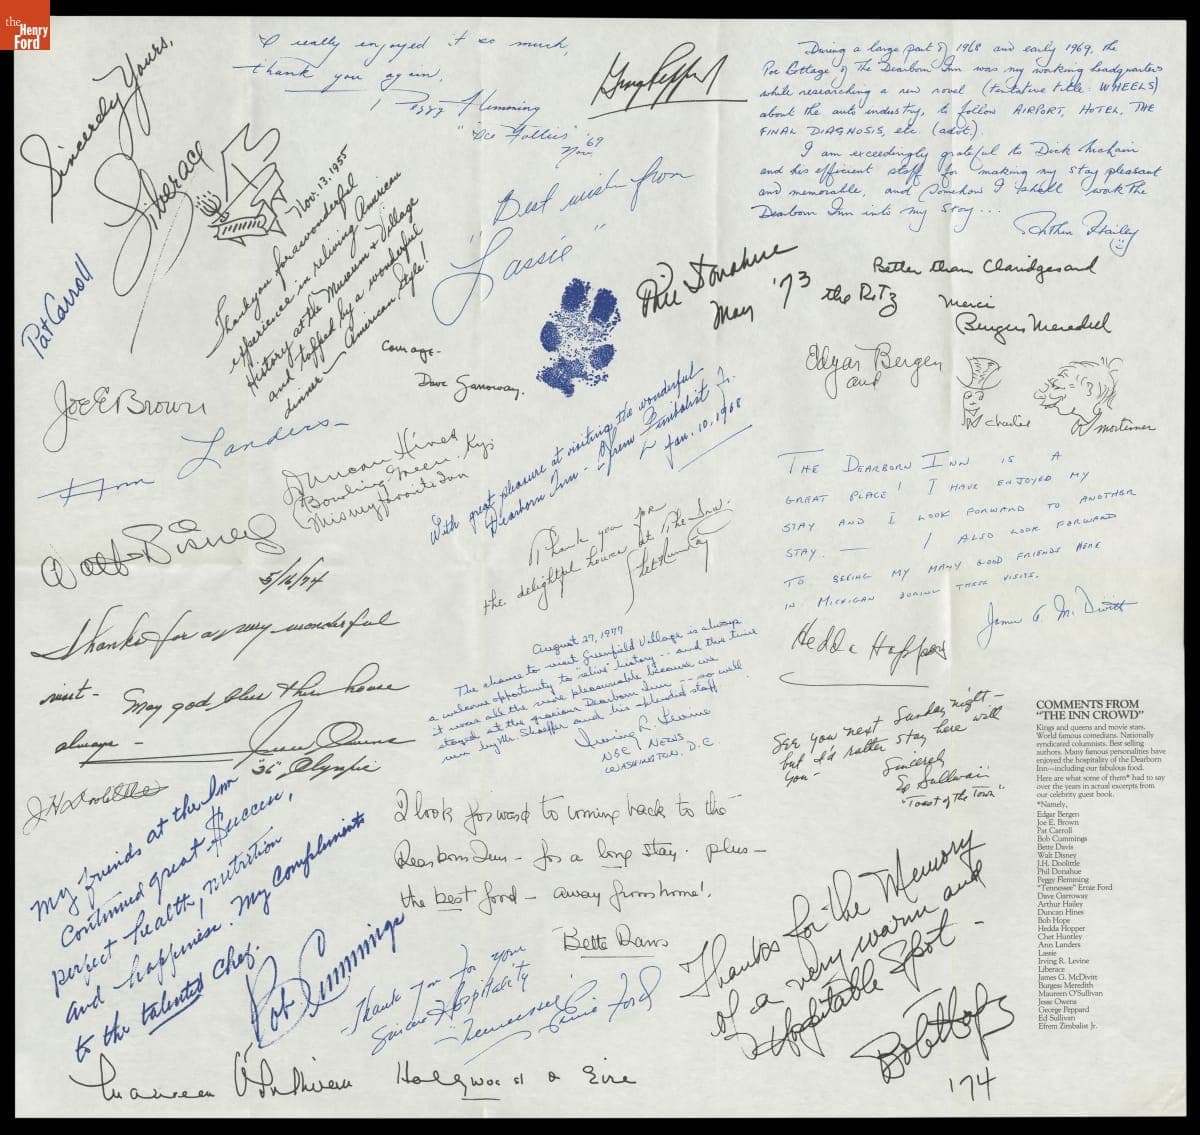 the
Henry
Ford
Sincerely Yours,
Liberace
I really enjoyed it so much,
thank you again.
Peggy Flemming
"Ice Follies"
Nov. '69
George Peppard
During a large part of 1968 and early 1969, the
Poe Cottage of The Dearborn Inn was my working headquarters
while researching a new novel (tentative title: WHEELS)
about the auto industry, to follow AIRPORT, HOTEL, THE
FINAL DIAGNOSIS, etc. (advt.).
I am exceedingly grateful to Dick McLain
and his efficient staff for making my stay pleasant
and memorable, and somehow I shall work the
Dearborn Inn into my story...
Arthur Hailey
Pat Carroll
Nov. 13. 1955
Thank you for a wonderful
experience in reliving American
History at the Museum & Village
and topped by a wonderful
dinner — American Style!
Best wishes from
"Lassie"
Phil Donahue
May '73
Better than Claridges and
the Ritz
Merci
Burgess Meredith
Courage-
Dave Garroway.
Edgar Bergen
and
charlie
mortimer
Joe E Brown
Ann Landers-
Duncan Hines
Bowling Green. Ky.
This my favorite Inn
With great pleasure at visiting the wonderful
Dearborn Inn - Efrem Zimbalist Jr.
Jan. 10. 1968
THE DEARBORN INN IS A
GREAT PLACE! I HAVE ENJOYED MY
STAY AND I LOOK FORWARD TO ANOTHER
STAY. — I ALSO LOOK FORWARD
TO SEEING MY MANY GOOD FRIENDS HERE
IN MICHIGAN DURING THESE VISITS.
James A. McDivitt
Walt Disney
Thank you for
the delightful hours at The Inn.
Chet Huntley
5/16/74
Thanks for a very wonderful
visit- May god bless this house
always -
Jesse Owens
"36" Olympic
August 27, 1977
The chance to visit Greenfield Village is always
a welcome opportunity to "relive" history -- and this time
it was all the more pleasurable because we
stayed at the gracious Dearborn Inn -- so well
run by Mr. Shaeffer and his splendid staff
Irving R. Levine
NBC NEWS
WASHINGTON, D.C.
Hedda Hopper
See you next Sunday night -
but I'd rather stay here with
you -
Sincerely
Ed Sullivan
"Toast of the Town"
J H Doolittle
My friends at the Inn
Continued great $uccess,
perfect health, nutrition
and happiness. My compliments
to the talented chef.
Bob Cummings
I look forward to coming back to the
Dearborn Inn - for a long stay. plus -
the best food - away from home!,
Bette Davis
Thank you for your
Sincere Hospitality
"Tennessee" Ernie Ford
Thanks for the Memory
of a very warm and
Hospitable Spot -
Bob Hope
'74
Maureen O'Sullivan Hollywood & Eire
COMMENTS FROM
"THE INN CROWD"
Kings and queens and movie stars.
World famous comedians. Nationally
syndicated columnists. Best selling
authors. Many famous personalities have
enjoyed the hospitality of the Dearborn
Inn—including our fabulous food.
Here are what some of them* had to say
over the years in actual excerpts from
our celebrity guest book.
*Namely,
Edgar Bergen
Joe E. Brown
Pat Carroll
Bob Cummings
Bette Davis
Walt Disney
J.H. Doolittle
Phil Donahue
Peggy Flemming
"Tennessee" Ernie Ford
Dave Garroway
Arthur Hailey
Duncan Hines
Bob Hope
Hedda Hopper
Chet Huntley
Ann Landers
Lassie
Irving R. Levine
Liberace
James G. McDivitt
Burgess Meredith
Maureen O'Sullivan
Jesse Owens
George Peppard
Ed Sullivan
Efrem Zimbalist Jr.